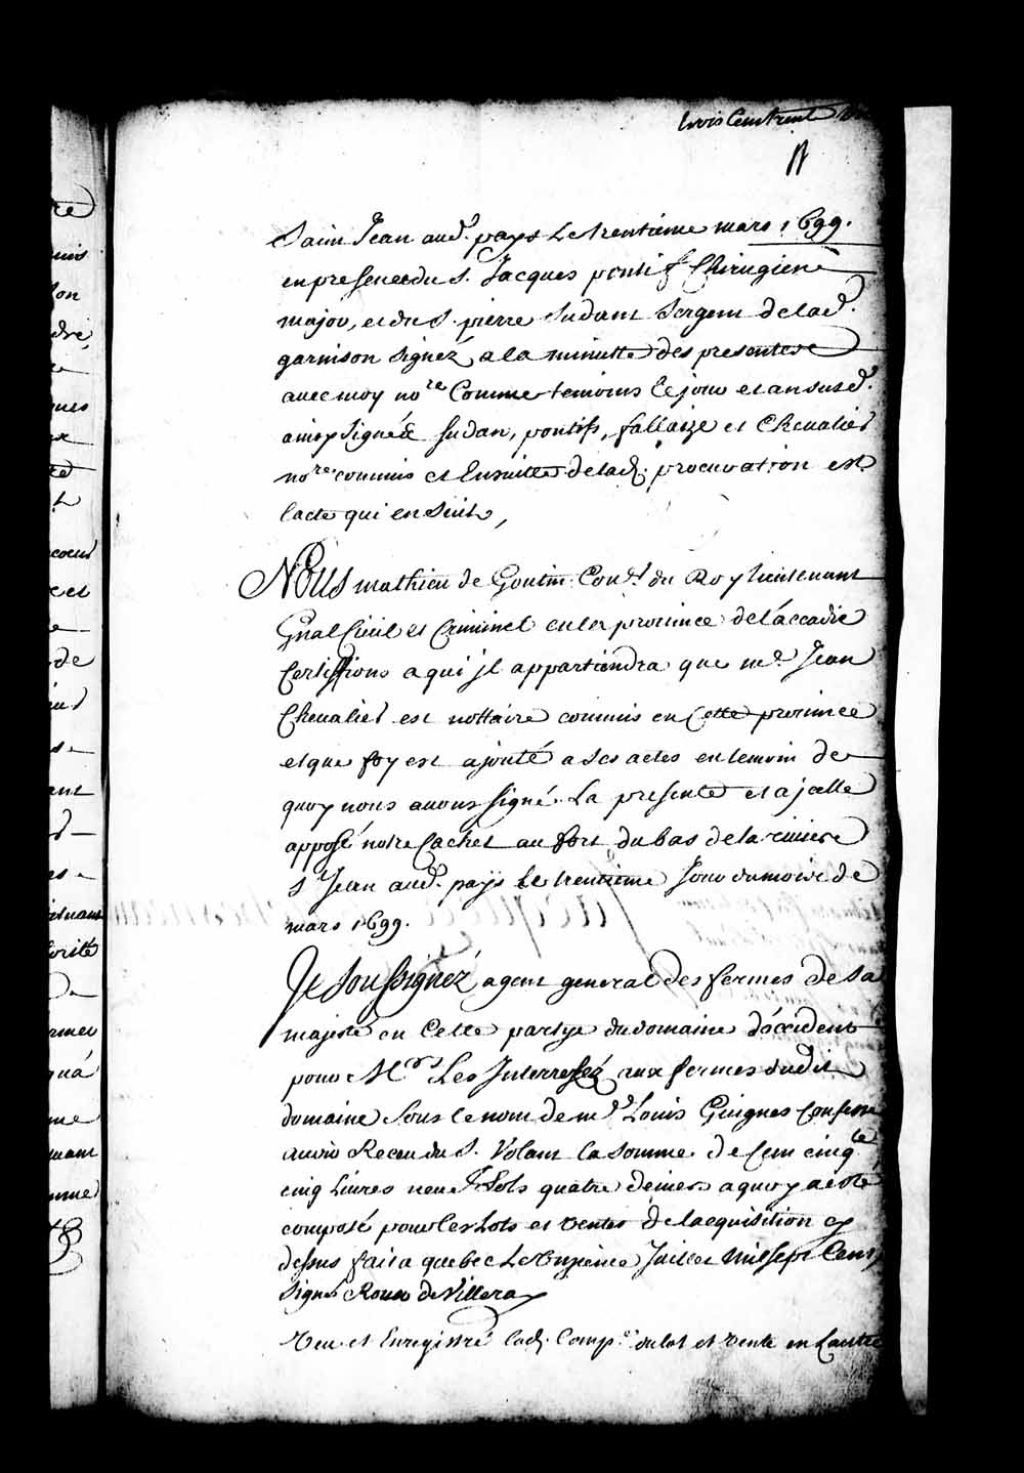 trois Cent trente
Saint Jean aud. pays Le trentiéme mars 1699.
en presence du S. Jacques pontif Chirugien
major, et du S. pierre Sudant Sergent de lad.
garnison signéz a la minutte des presentes
avec moy nore Comme temoins Ce jour et an susd.
ainsy Signéz Sudan, pontifs, fallaize et Chevalier
nore commis et Ensuitte de lad. procuration est
lacte qui en Suit,
Nous mathieu de Goutin Conser du Roy lieutenant
Gnal Civil et Criminel en la province de l'accadie
Certiffions a qui jl appartiendra que me Jean
Chevalier est nottaire commis en Cette province
et que foy est ajouté a ses actes en temoin de
quoy nous avons signé. La presente et a jcelle
apposé notre Cachet au fort du bas de la riviere
S Jean aud. pays Le trentiéme Jour du mois de
mars 1699.
Je Soussignéz agent general des fermes de Sa
majesté en Cette partye du domaine d'occident
pour Mrs Les Interressez aux fermes dudit
domaine sous le nom de me Louis Guigues Confesse
avoir Receu du S. Volant la somme de Cent cinqte
cinq Livres neuf Sols quatre deniers a quoy a esté
composé pour les Lots et ventes de lacquisition cy
dessus fait a quebec Le Onzieme Juillet mil sept Cent,
Signé Rouer de Villeray
Veu et Enregistré lad. Comp.on du lot et vente en Lautre